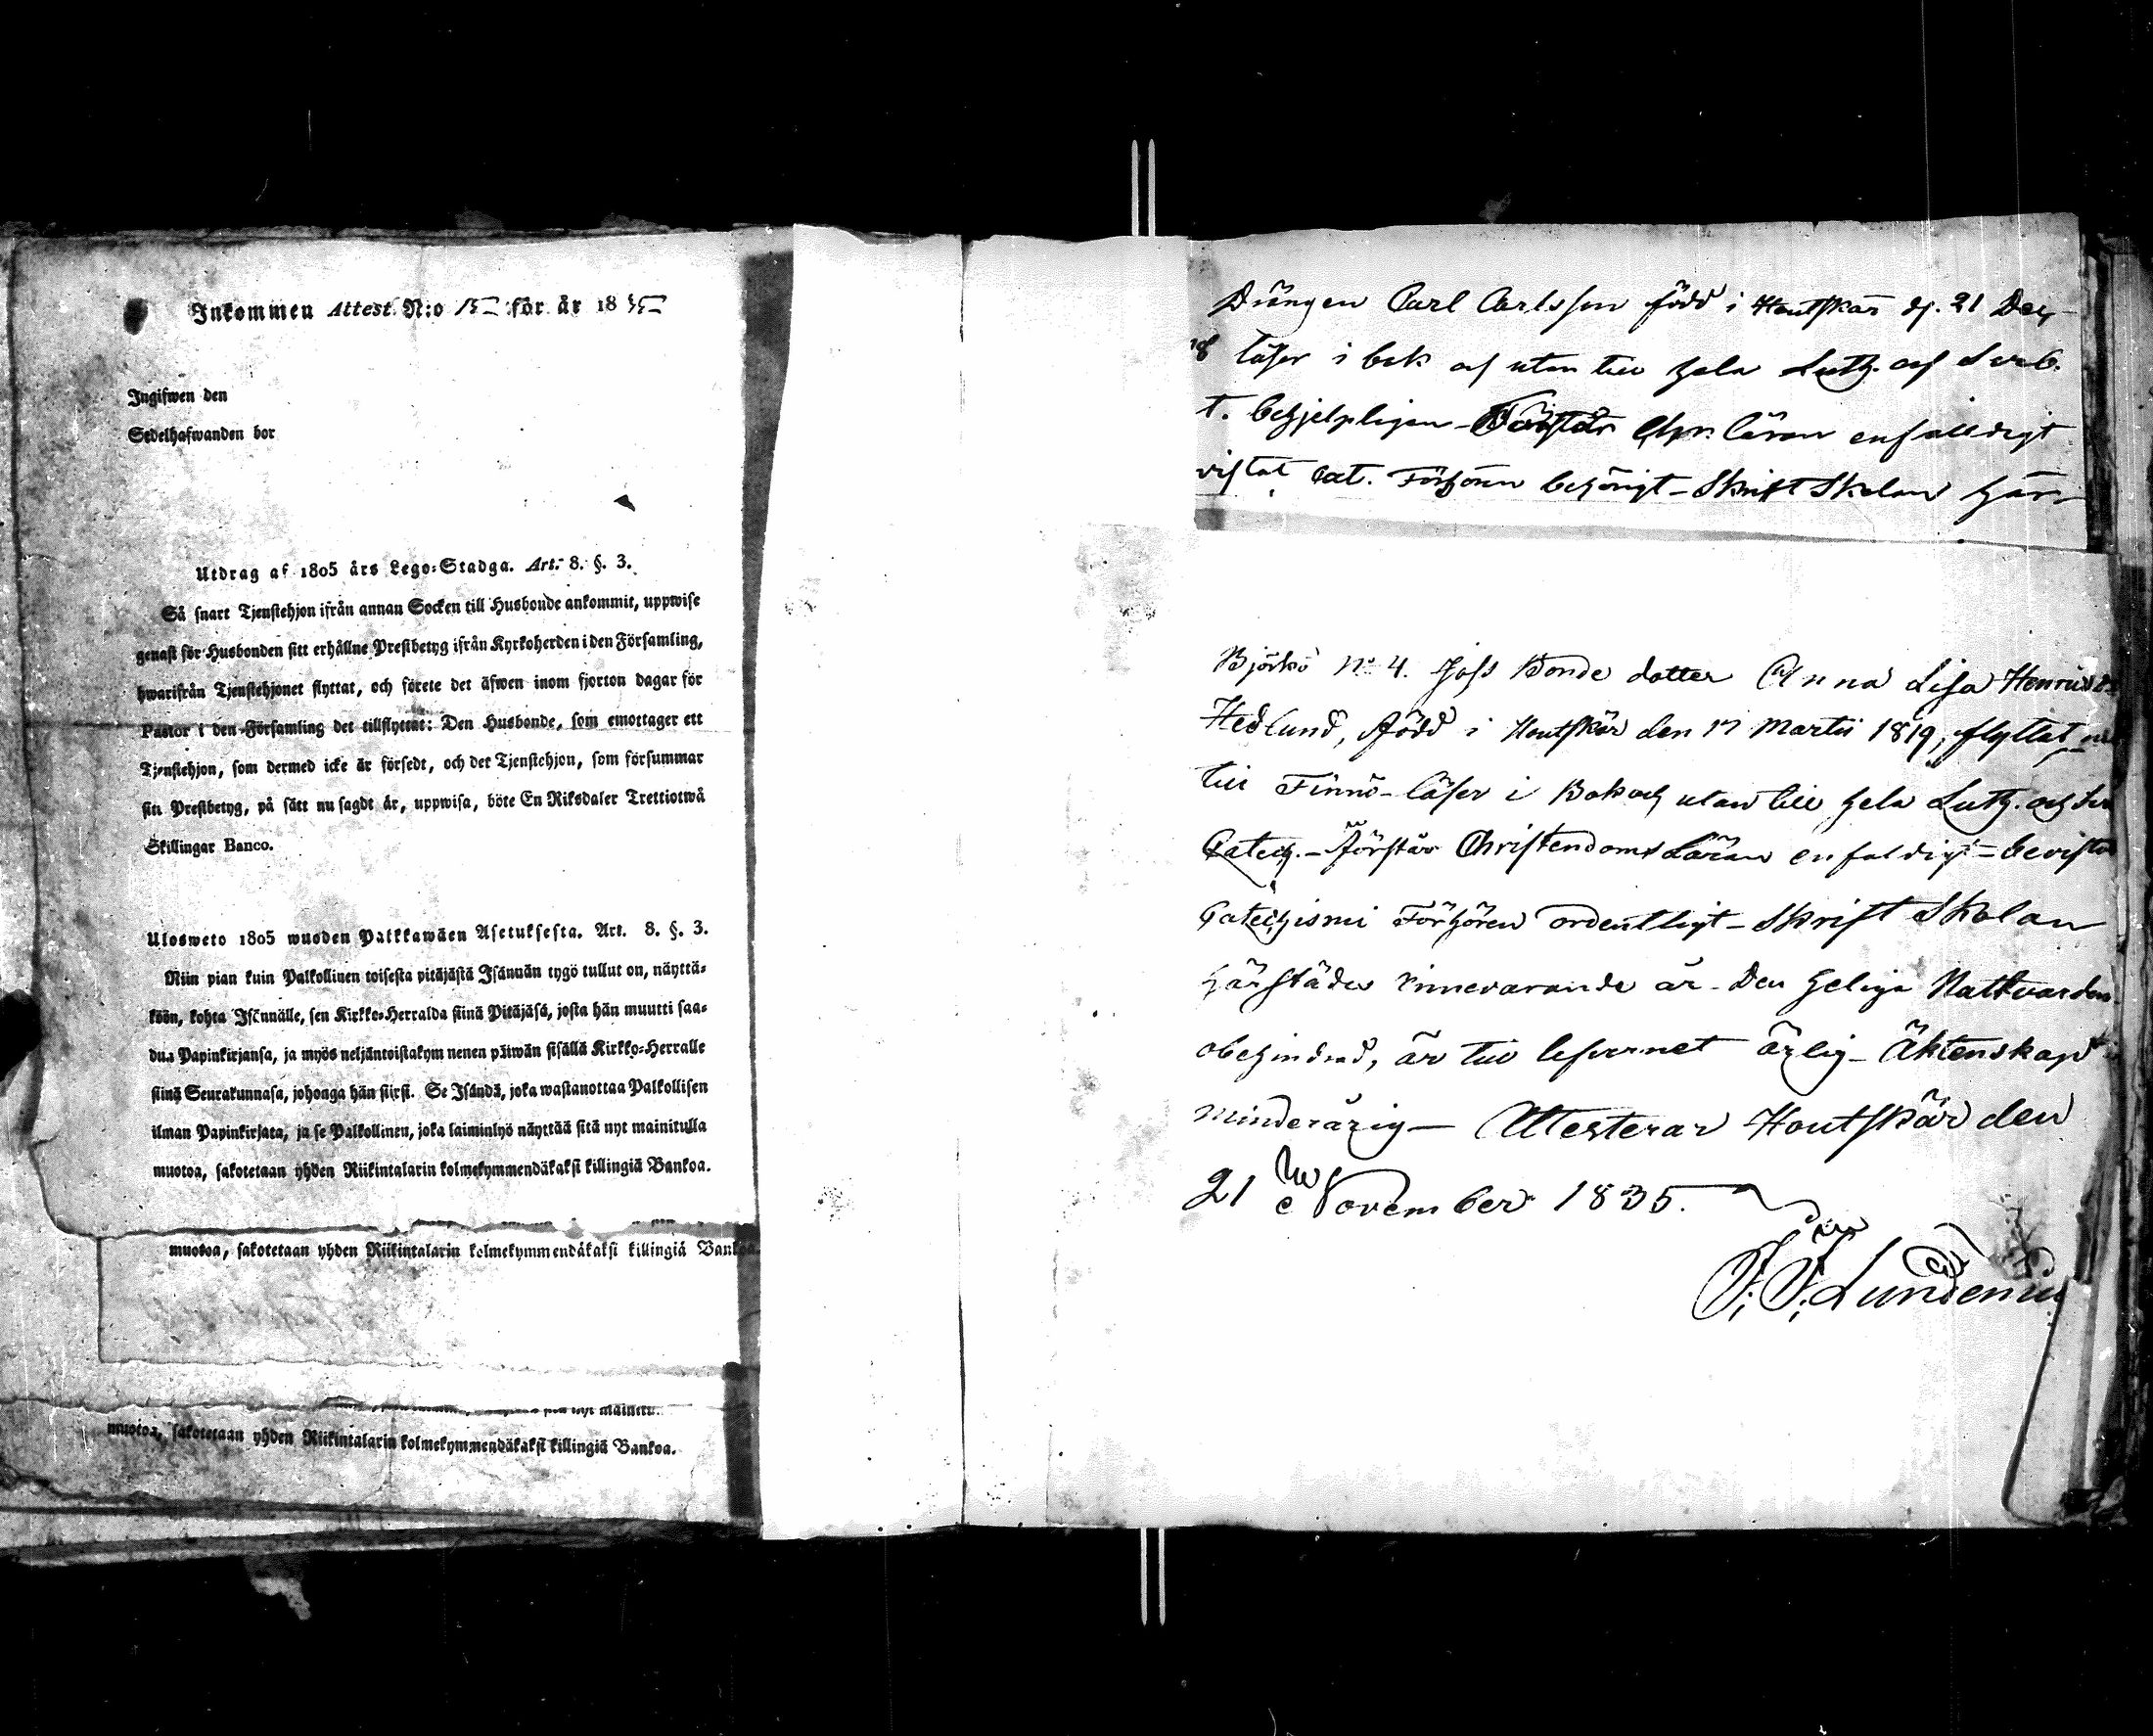 Inkommen Attest. N:o 15 för år 1835
Ingifwen den
Sedelhafwanden bor
Utdrag af 1805 års Lego-Stadga. Art. 8. §. 3.
Så snart Tjenstehjon ifrån annan Socken till Husbonde ankommit, uppwise
genast för Husbonden sitt erhållne Prestbetyg ifrån Kyrkoherden i den Församling,
hwarifrån Tjenstehjonet flyttat, och förete det äfwen inom fjorton dagar för
Pastor i den Församling det tillflyttat: Den Husbonde, som emottager ett
Tjenstehjon, som dermed icke är försedt, och det Tjenstehjon, som försummar
sitt Prestbetyg, på sätt nu sagdt är, uppwisa, böte En Riksdaler Trettiotwå
Skillingar Banco.
Ulosweto 1805 wuoden Palkkawäen Asetuksesta. Art. 8. §. 3.
Niin pian kuin Palkollinen toisesta pitäjästä Isännän tygö tullut on, näyttä-
köön, kohta Isännälle, sen Kirkko-Herralda siinä Pitäjäsä, josta hän muutti saa-
dun Papinkirjansa, ja myös neljäntoistakymmenen päiwän sisällä Kirkko-Herralle
siinä Seurakunnasa, johonga hän siirsi. Se Isändä, joka wastanottaa Palkollisen
ilman Papinkirjata, ja se Palkollinen, joka laiminlyö näyttää sitä nyt mainitulla
muotoa, sakotetaan yhden Riikintalarin kolmekymmendäkaksi killingiä Bankoa.
muotoa, sakotetaan yhden Riikintalarin kolmekymmendäkaksi killingiä Bankoa.
muotoa, sakotetaan yhden Riikintalarin kolmekymmendäkaksi killingiä Bankoa.
Drängen Carl Carlsson född i Houtskär d. 21 Dec
läser i bok och utan till hela Luth. och Sveb.
t. behjelpligen - Förstår Chr. läran enfalldigt
vistat Cat. Förhören behörigt - Skrift Skolan här
Björkö No 4. Joss Bonde dotter Anna Lisa Henrics
Hedlund, född i Houtskär den 17 Martii 1819, flyttat
till Finnö - läser i Bok och utan till hela Luth. och Sve
Catech. - Förstår Christendoms Läran enfaldigt = bevista
Catechismi Förhören ordentligt - Skrift Skolan
härstädes innevarande år - Den heliga Nattvarden
obehindrad, är till lefvernet ärlig - Äktenskap
minderårig - Attesterar Houtskär den
21 November 1835.
J. J. Lundenius